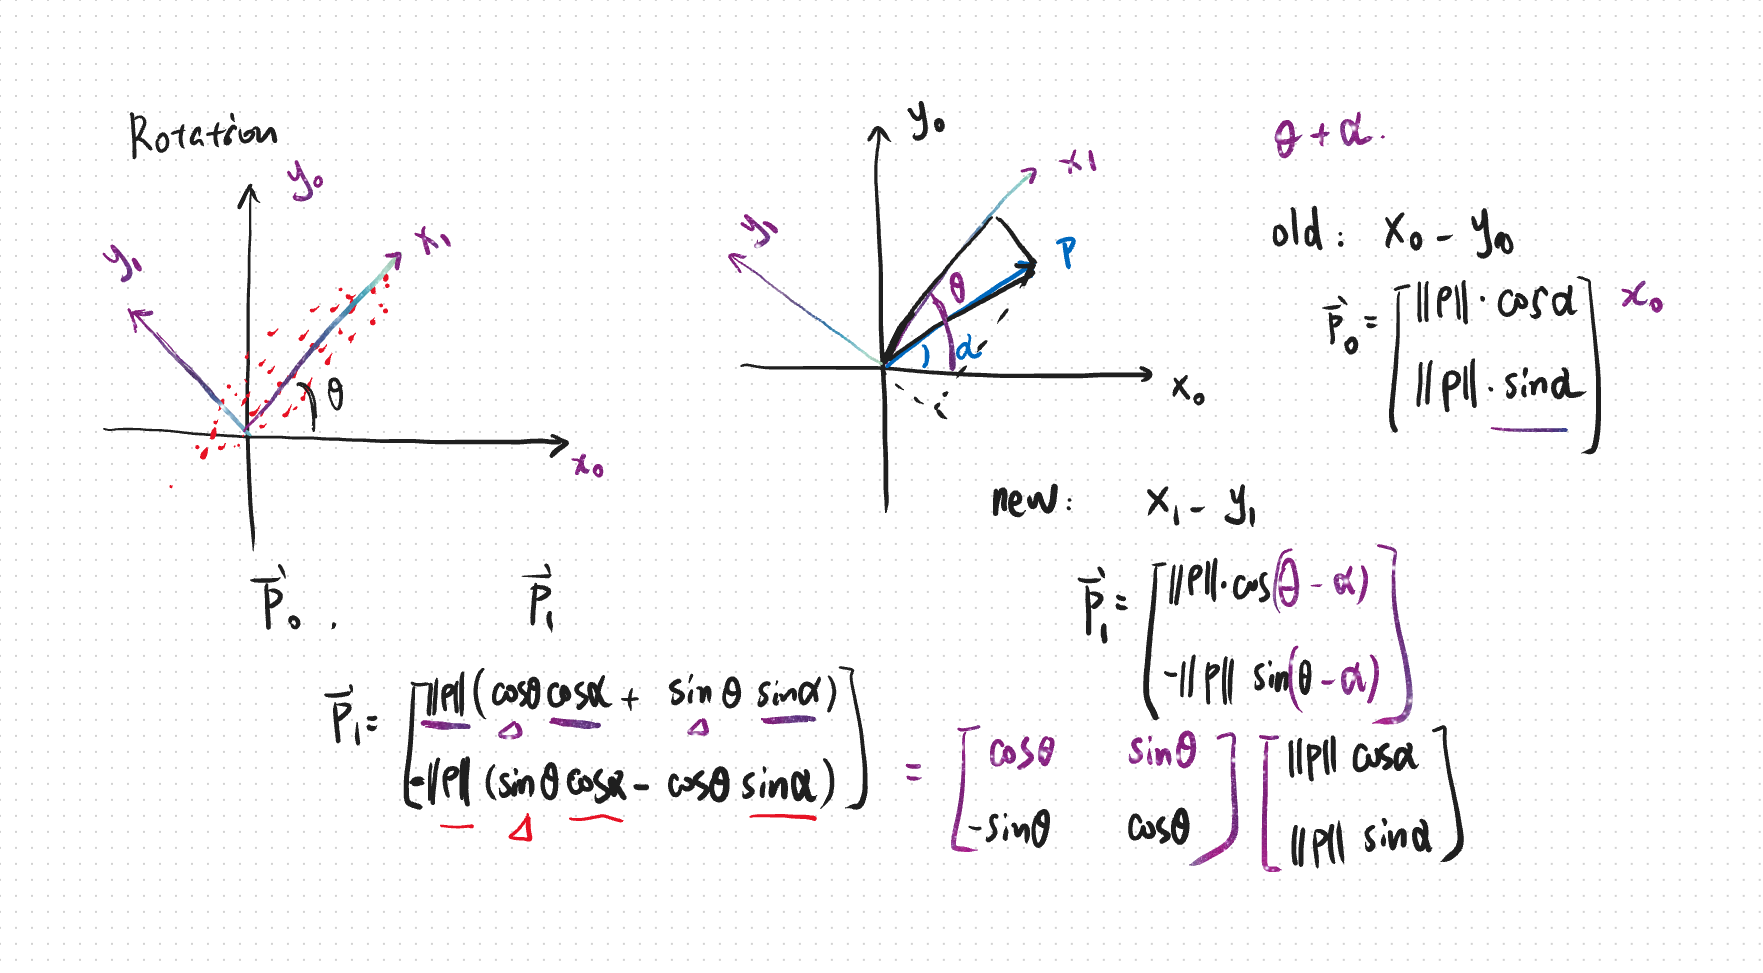 Rotation
y₀
x₁
y₁
θ
x₀
y₀
x₁
y₁
P
θ
α
x₀
θ + α.
old: x₀ - y₀
P⃗₀ = [ ||P|| · cosα
||P|| · sinα ]
x₀
new: x₁ - y₁
P⃗₀ .
P⃗₁
P⃗₁ = [ ||P|| · cos(θ - α)
-||P|| sin(θ - α) ]
P⃗₁ = [ ||P|| (cosθ cosα + sinθ sinα)
-||P|| (sinθ cosα - cosθ sinα) ]
= [ cosθ sinθ
-sinθ cosθ ]
[ ||P|| cosα
||P|| sinα ]